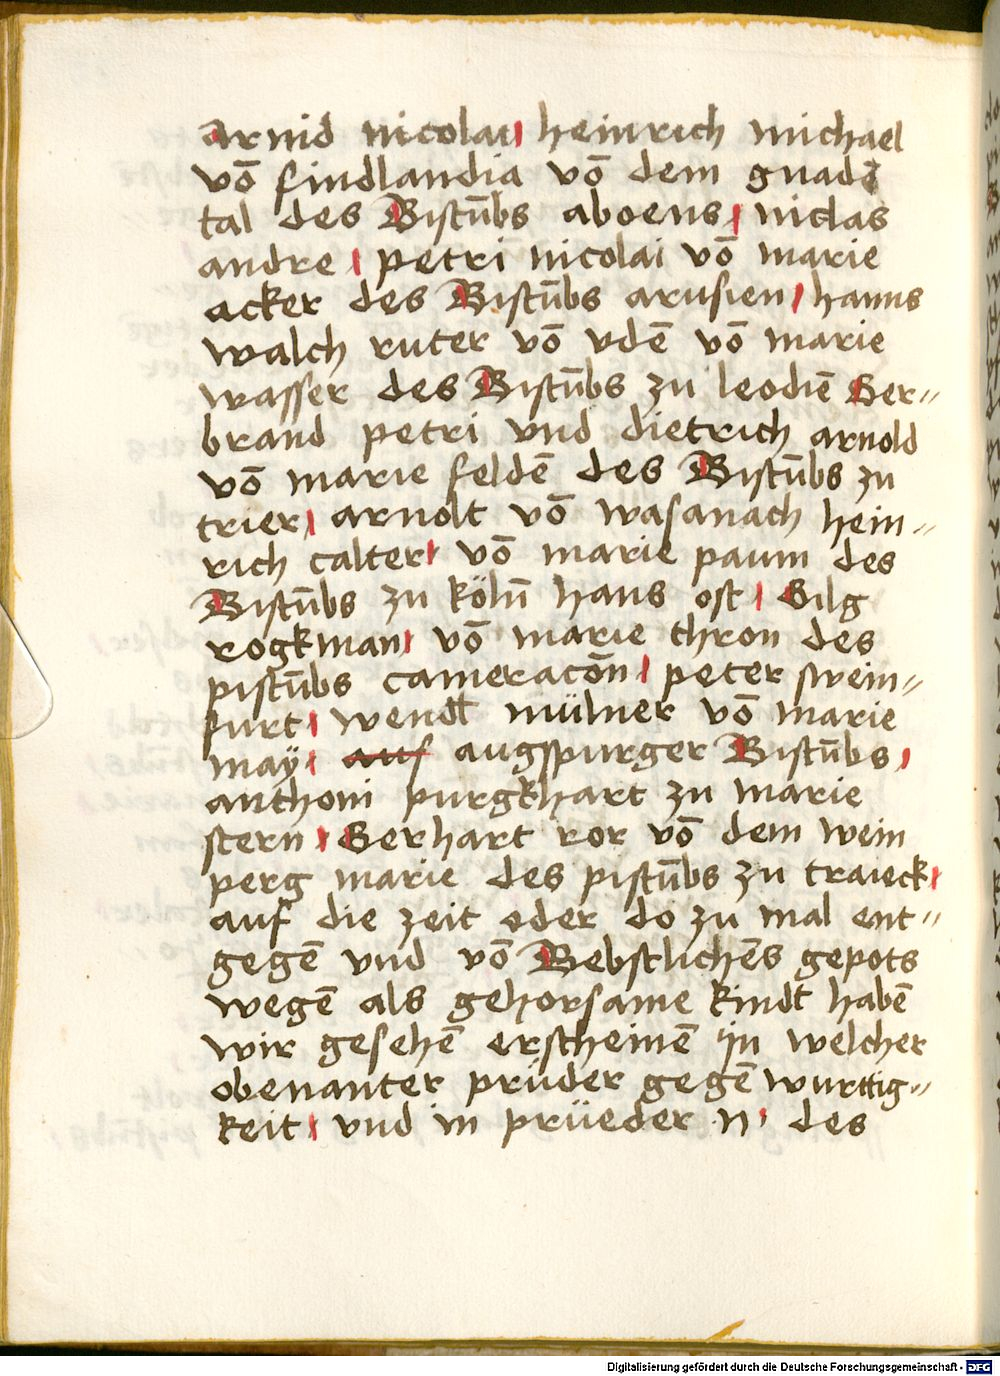 Arnid nicolai heinrich michael
vō findlandia vō dem gnadē
tal des Bistūbs aboens, niclas
andre petri nicolai vō marie
acker des Bistūbs arusien hanns
walch ruter vō vdē vō marie
wasser des Bistūbs zu leodiē Ger=
brand petri vnd dietrich arnold
vō marie feldē des Bistūbs zu
trier arnolt vō wasanach hein=
rich calter vō marie paum des
Bistūbs zu kölū hans ost Gilg
rogkman vō marie thron des
pistūbs cameracōn peter swein=
furt wendt mülner vō marie
may auf augspurger Bistūbs,
anthoni purgkhart zu marie
stern Gerhart ror vō dem wein
perg marie des pistūbs zu traieck
auf die zeit oder do zu mal ent=
gegē vnd vō Bebstlichēs gepots
wegē als gehorsame kindt habē
wir gesehē erscheinē jn welcher
obenanter prüder gegē wurttig=
keit vnd in prüeder .n. des
Digitalisierung gefördert durch die Deutsche Forschungsgemeinschaft - DFG